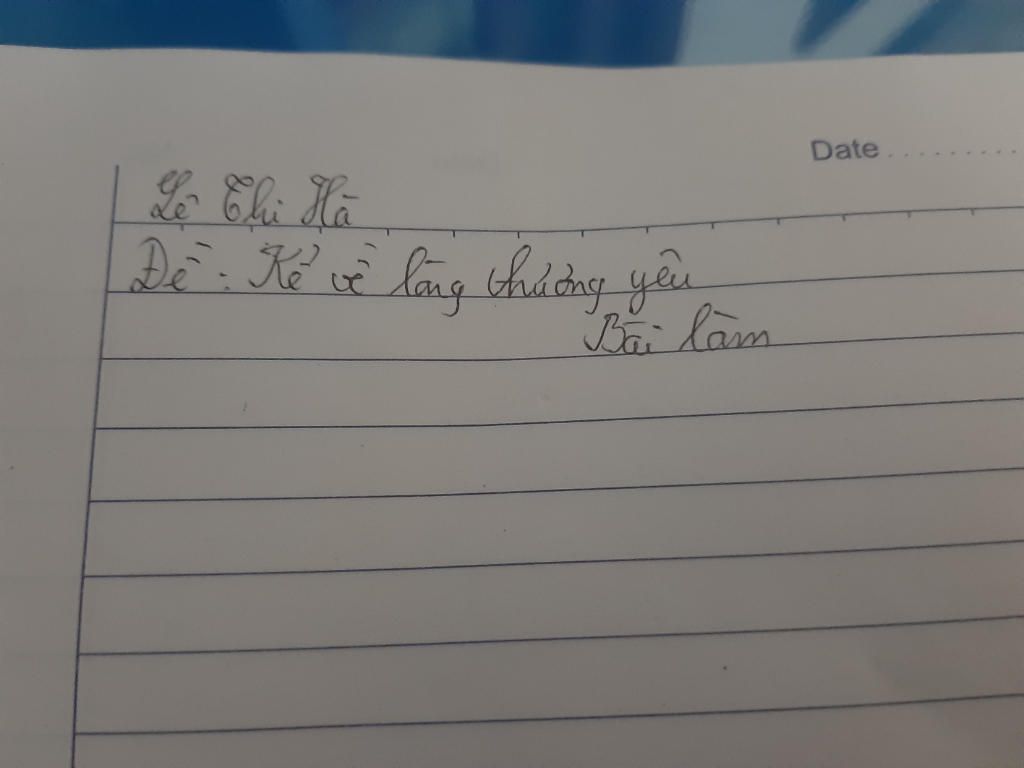 Date..........
Lê Thi Hà
Đề: Kể về lòng thương yêu
Bài làm